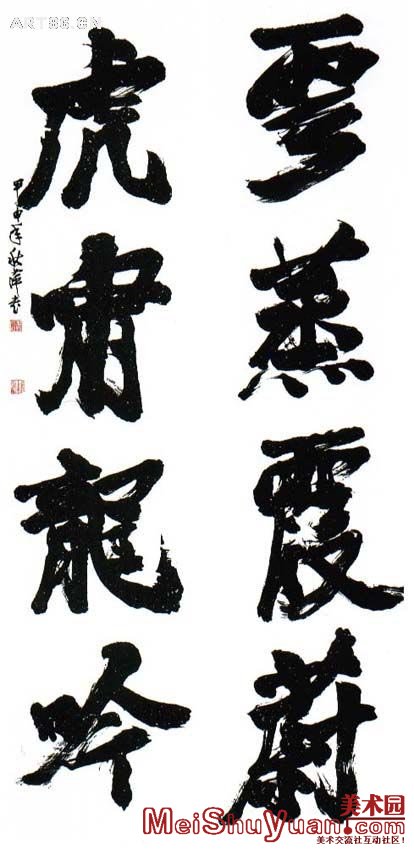 雲蒸霞蔚
虎嘯龍吟
甲申年秋萍书
美术园
MeiShuYuan.com
美术交流社互动社区!